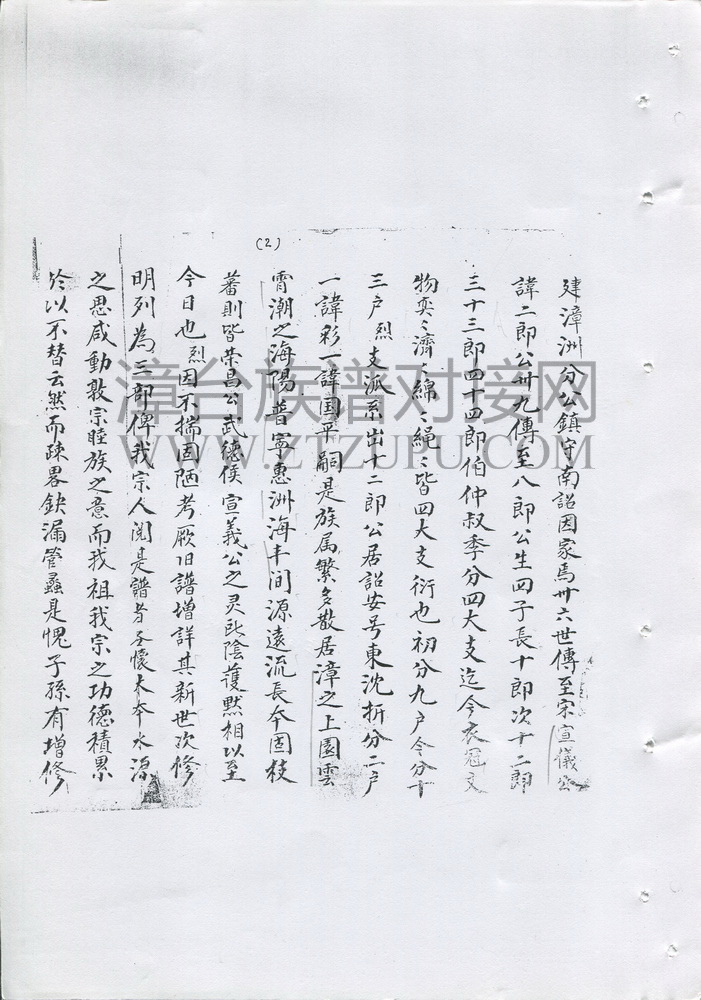 (2)
建漳洲分公鎮守南詔因家焉卅六世傳至宋宣儀公
諱二郎公卅九傳至八郎公生四子長十郎次十二郎
三十三郎四十四郎伯仲叔季分四大支迄今衣冠文
物奕〻濟〻綿〻繩〻皆四大支衍也初分九户今分十
三户烈支派系出十二郎公居詔安号東沈折分二户
一諱彩一諱国平嗣是族属繁多散居漳之上園雲
霄潮之海陽普寧惠洲海丰间源遠流長夲固枝
蕃則皆荣昌公武德侯宣義公之灵所陰護黙相以至
今日也烈因不揣固陋考厥旧譜增詳其新世次修
明列為三部俾我宗人阅是譜者各懷木夲水源
之思咸動敦宗睦族之意而我祖我宗之功德積累
於以不替云然而疎畧缺漏管蠡是愧子孫有增修
漳台族谱对接网
WWW.ZTZUPU.COM